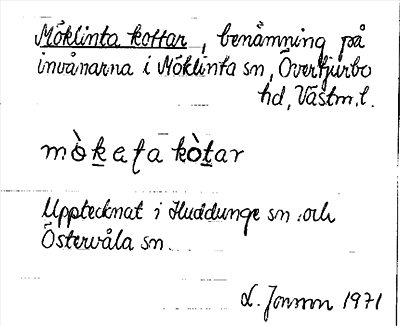 Möklinta kottar, benämning på
invånarna i Möklinta sn, Övertjurbo
hd, Västm.l.
mò̀kaƚa kòtar
Upptecknat i Huddunge sn och
Östervåla sn.
L. Jonson 1971